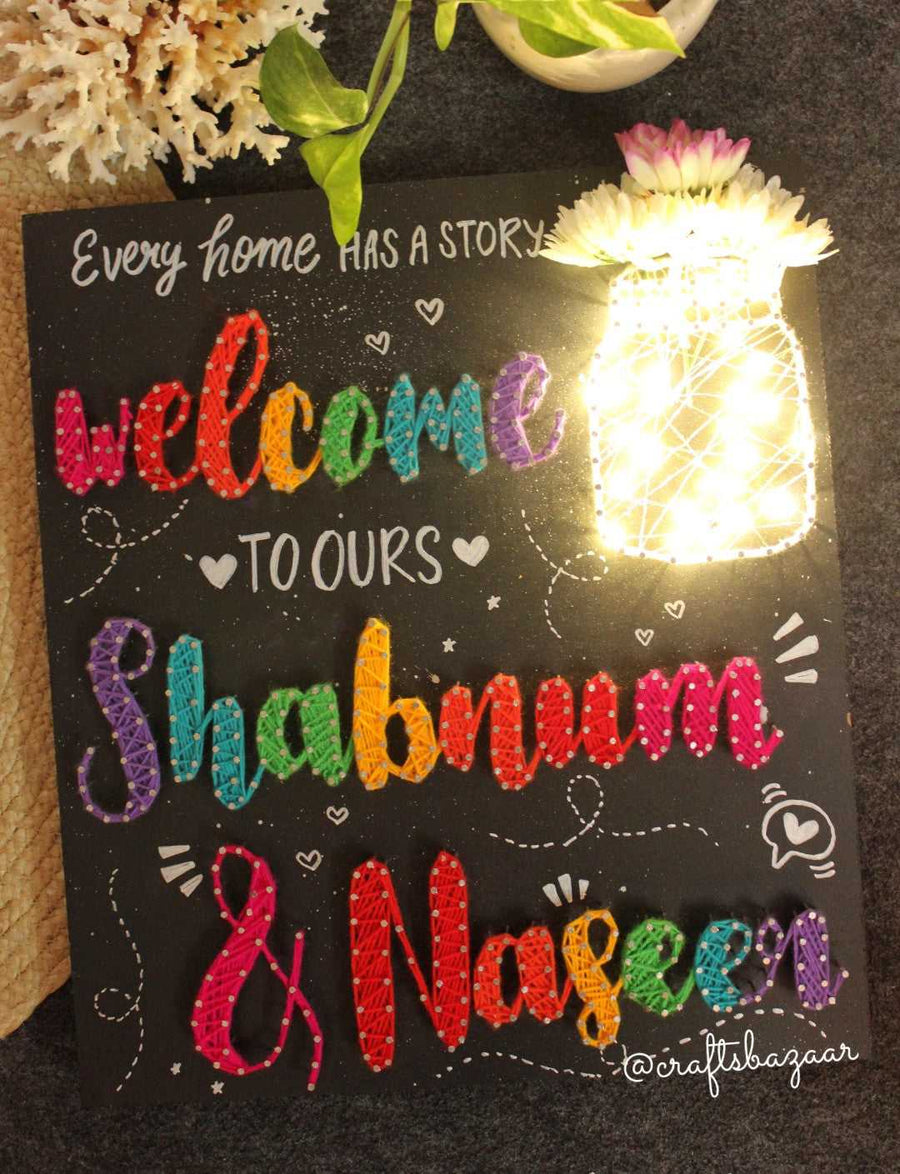 Every home HAS A STORY
welcome
TO OURS
Shabnum
& Nageen
@craftsbazaar